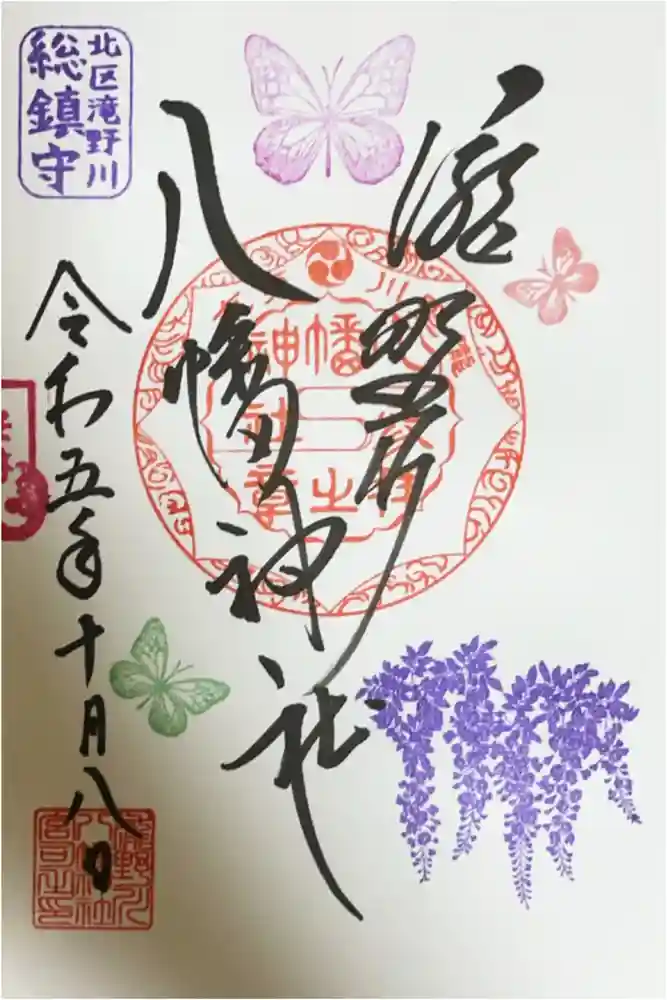 滝野川
八幡神社
北区滝野川
総鎮守
令和五年十月八日